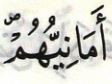 أَمَانِيُّهُمْ